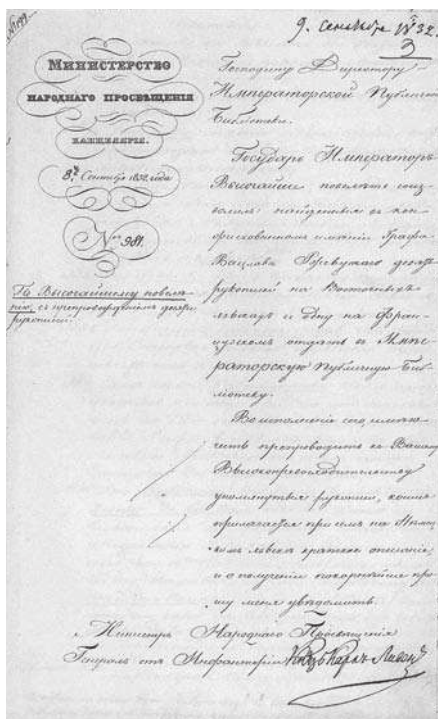 9. Сентября 1832.
3
МИНИСТЕРСТВО
НАРОДНАГО ПРОСВѢЩЕНІЯ
КАНЦЕЛЯРІЯ.
8го Сентября 1832 года
№ 981.
По Высочайшему повелѣ-
нію, съ препровожденіемъ десяти
рукописей.
Господину Директору
Императорской Публичной
Библіотеки.
Государь Императоръ
Высочайше повелѣть соиз-
волилъ: найденныя въ кон-
фискованномъ имѣніи Графа
Вацлава Ржевускаго десять
рукописей на Восточныхъ
языкахъ и одну на Фран-
цузскомъ отдать въ Импе-
раторскую Публичную Биб-
ліотеку.
Во исполненіе сего, имѣю
честь препроводить къ Вашему
Высокопревосходительству
упомянутыя рукописи, коимъ
прилагается при семъ на Нѣмец-
комъ языкѣ краткое описаніе,
и о полученіи покорнѣйше про-
шу меня увѣдомить.
Министръ Народнаго Просвѣщенія
Генералъ отъ Инфантеріи Князь Карлъ Ливенъ